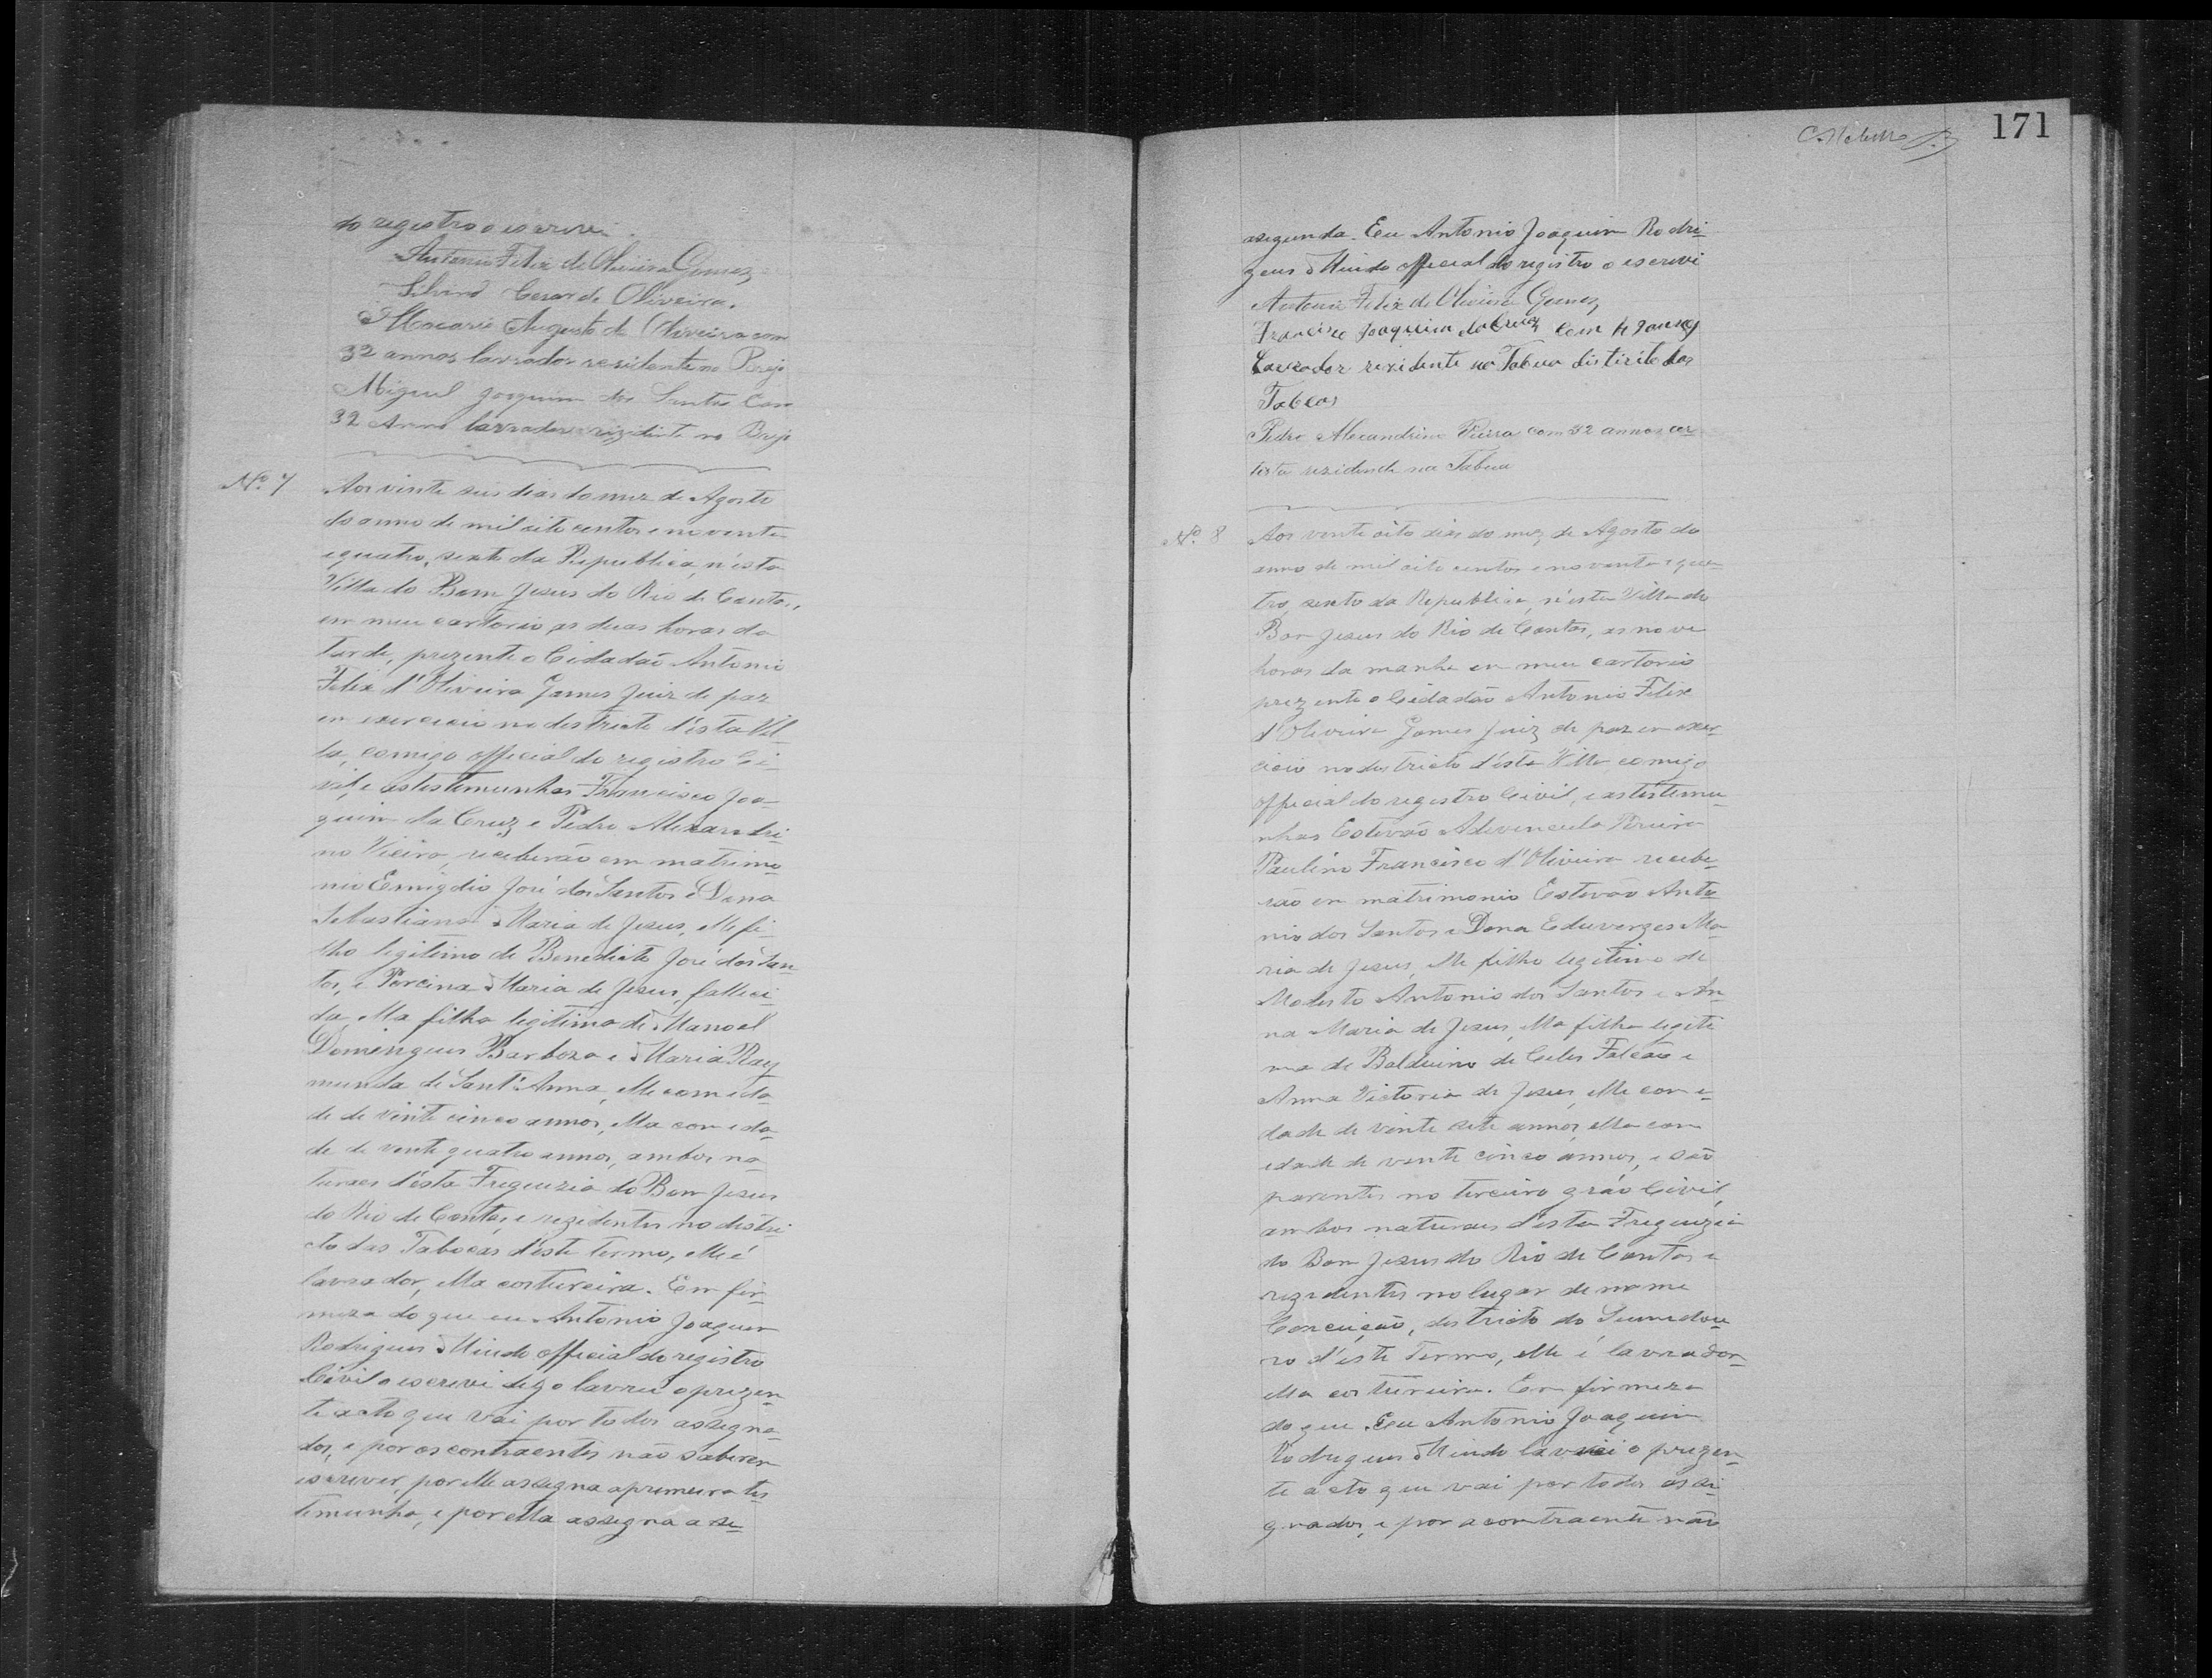 do registro o escrevi.
Antonio Felix de Oliveira Gomes
Silvino Cesar de Oliveira.
Macario Augusto de Oliveira com
32 annos lavrador residente no Brejo
Miguel Joaquim dos Santos Com
32 Annos lavrador rezidente no Brejo
Nº. 7
Aos vinte seis dias do mez de Agosto
do anno de mil oito centos e noventa
e quatro, sexto da Republica, n'esta
Villa do Bom Jesus do Rio de Contas,
em meu cartorio, as duas horas da
tarde, prezente o Cidadão Antonio
Felix d'Oliveira Gomes Juiz de paz
em exercicio no destricto d'esta Vil
la, comigo official do registro Ci-
vil, e as testemunhas Francisco Joa-
quim da Cruz e Pedro Alexandri-
no Vieira, receberão em matrimo-
nio Emigdio José dos Santos e Dona
Sebastiana Maria de Jesus, elle fi-
lho legitimo de Benedicto José dos San
tos, e Porcina Maria de Jesus, falleci-
da, ella filha legitima de Manoel
Domingues Barboza e Maria Ray
munda de Sant'Anna, elle com ida-
de de vinte cinco annos, ella com ida-
de de vente quatro annos, ambos na-
turaes d'esta Freguezia do Bom Jesus
do Rio de Contas, e rezidentes no distri
cto das Tabocas d'este termo, elle é
lavrador, ella costureira. Em fir-
meza do que eu Antonio Joaquim
Rodrigues Mindo official do registro
Civil o escrevi digo lavrei o prezen-
te acto que vai por todos assegna-
dos, e por os contraentes não saberem
escrever, por elle assegna a primeira tes
temunha, e por ella assegna a se-
171
asegunda. Eu Antonio Joaquim Rodri-
gues Mindo official do registro o escrevi
Antonio Felix de Oliveira Gomes
Francisco Joaquim da Cruz com annos
Lavrador rezidente na Tabua distirito das
Tabcas
Pedro Alexandrino Vieira com 32 annos ar-
tista rezidende na Tabua
Nº. 8
Aos vente oito dias do mez de Agosto do
anno de mil oito centos e noventa e qua-
tro, sexto da Republica, n'esta Villa do
Bom Jesus do Rio de Contas, as nove
horas da manha em meu cartorio
prezente o Cidadão Antonio Felix
d'Oliveira Gomes Juiz de paz em exer-
cicio no destricto d'esta Villa comigo
official do registro Civil, e as testemu-
nhas Estevão Adevincula Pereira
Paulino Francisco d'Oliveira recebe-
rão em matrimonio Estevão Anto-
nio dos Santos e Dona Eduverges Ma-
ria de Jesus, elle filho legitimo de
Modesto Antonio dos Santos e An-
na Maria de Jesus, ella filha legiti
ma de Balduino de Falcão e
Anna Victoria de Jesus, elle com i-
dade de vinte sete annos, ella com
idade de vente cinco annos, e são
parentes no terceiro gráo Civil,
ambos naturaes d'esta Freguezia
do Bom Jesus do Rio de Contas e
rezidentes no lugar de nome
Conceição, destricto do Sumidou-
ro d'este Termo, elle é lavrador-
ella costureira. Em firmeza
do que. Eu Antonio Joaquim
Rodrigues Mindo lavrei o prezen-
te acto que vai por todos assi-
gnados, e por a contraente não